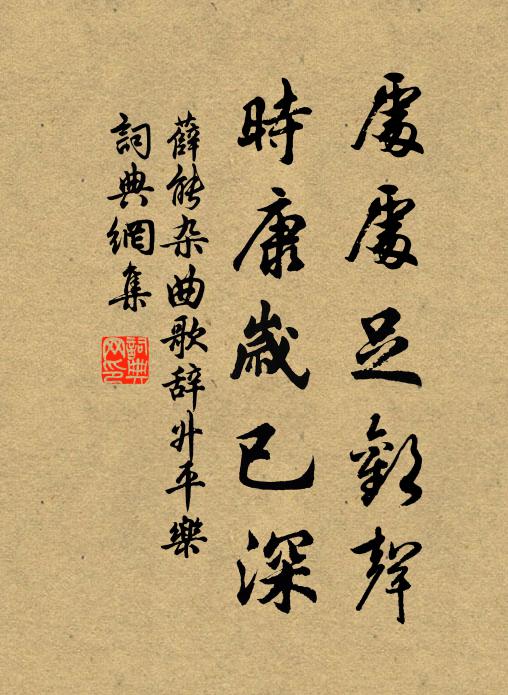 處處足歡聲
時康歲已深
薛能杂曲歌辞升平樂
詞典網集
詞典网印